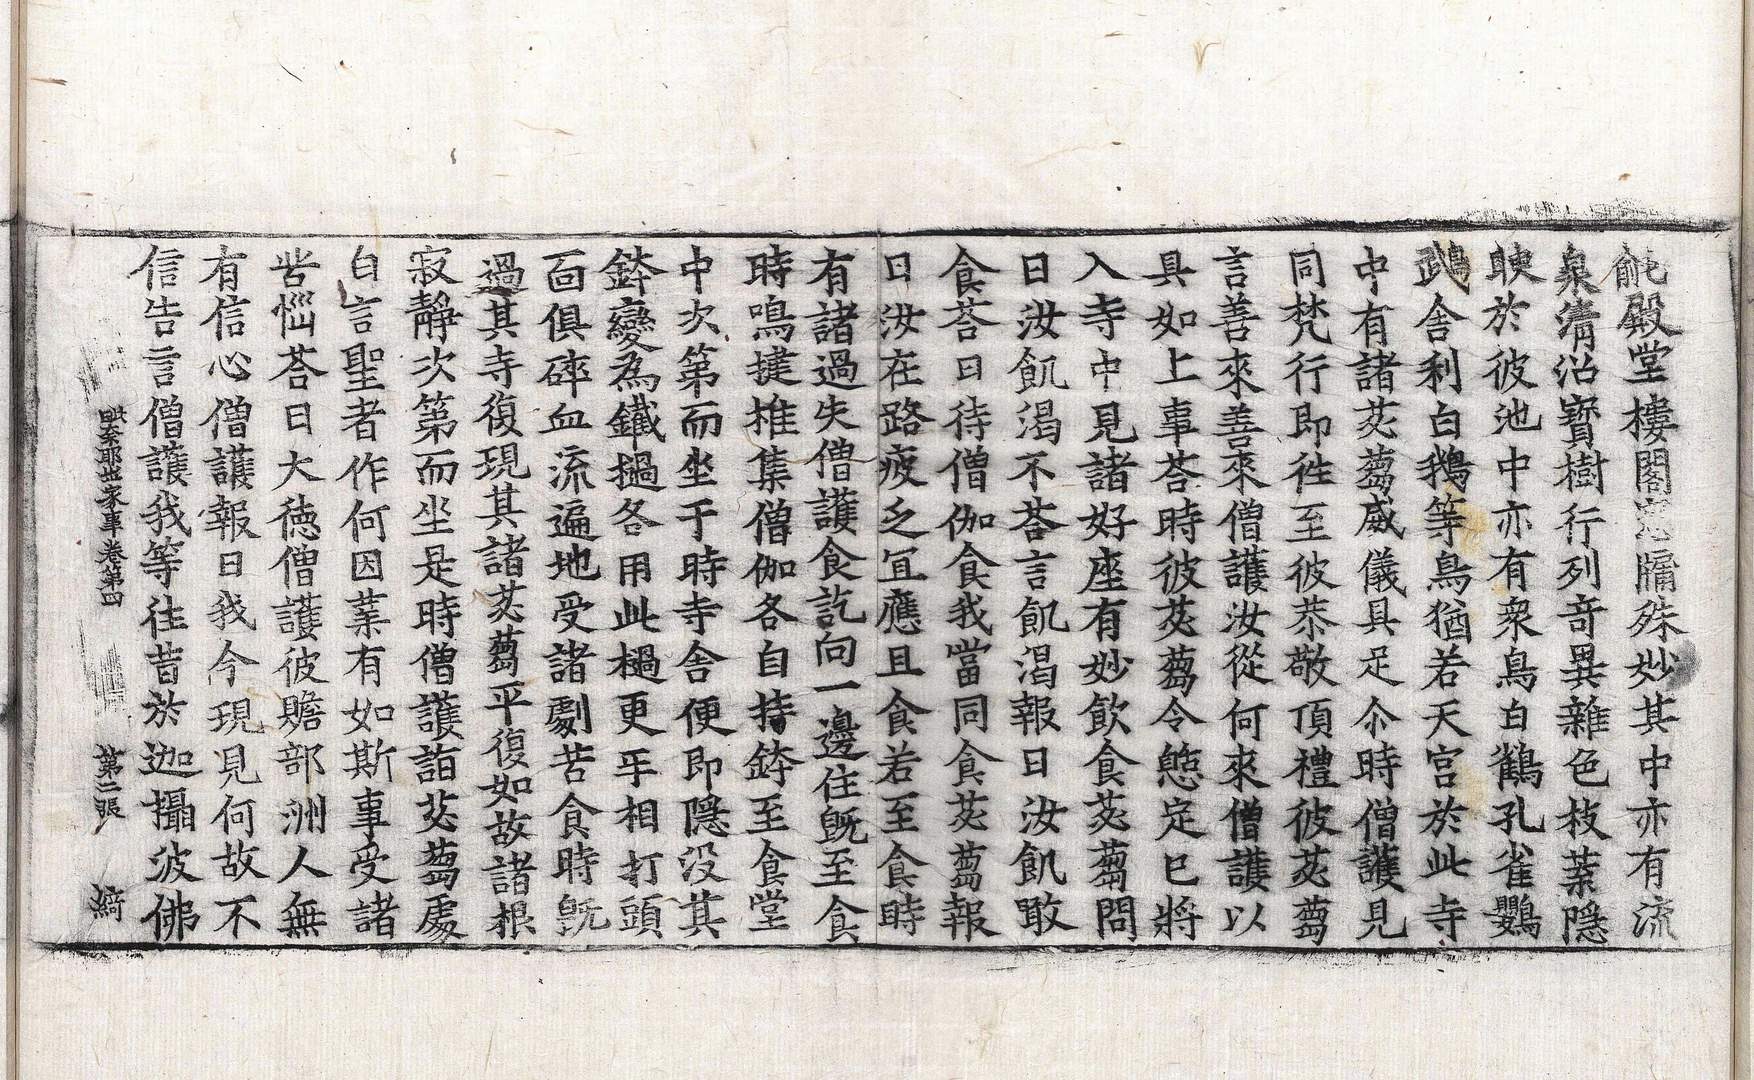 飩殿堂樓閣窓牖殊妙其中亦有流
泉清沼寶樹行列竒異雜色枝葉隱
映於彼池中亦有衆鳥白鶴孔雀鸚
鵡舎利白鵝等鳥猶若天宫於此寺
中有諸苾蒭威儀具足尒時僧護見
同梵行即徃至彼恭敬頂禮彼苾蒭
言善來善來僧護汝從何來僧護以
具如上事荅時彼苾蒭令憩定已將
入寺中見諸好座有妙飲食苾蒭問
曰汝飢渴不荅言飢渴報曰汝飢敢
食荅曰待僧伽食我當同食苾蒭報
曰汝在路疲乏冝應且食若至食時
有諸過失僧護食訖向一邊住旣至食
時鳴揵椎集僧伽各自持鉢至食堂
中次第而坐于時寺舎便即隱没其
鉢變為鐵撾各用此檛更乎相打頭
面俱碎血流遍地受諸劇苦食時旣
過其寺復現其諸苾蒭平復如故諸根
寂靜次第而坐是時僧護詣苾蒭處
白言聖者作何因業有如斯事受諸
苦惱荅曰大徳僧護彼贍部洲人無
有信心僧護報曰我今現見何故不
信告言僧護我等往昔於迦攝波佛
毗奈耶出家事卷第四 第二張 綺